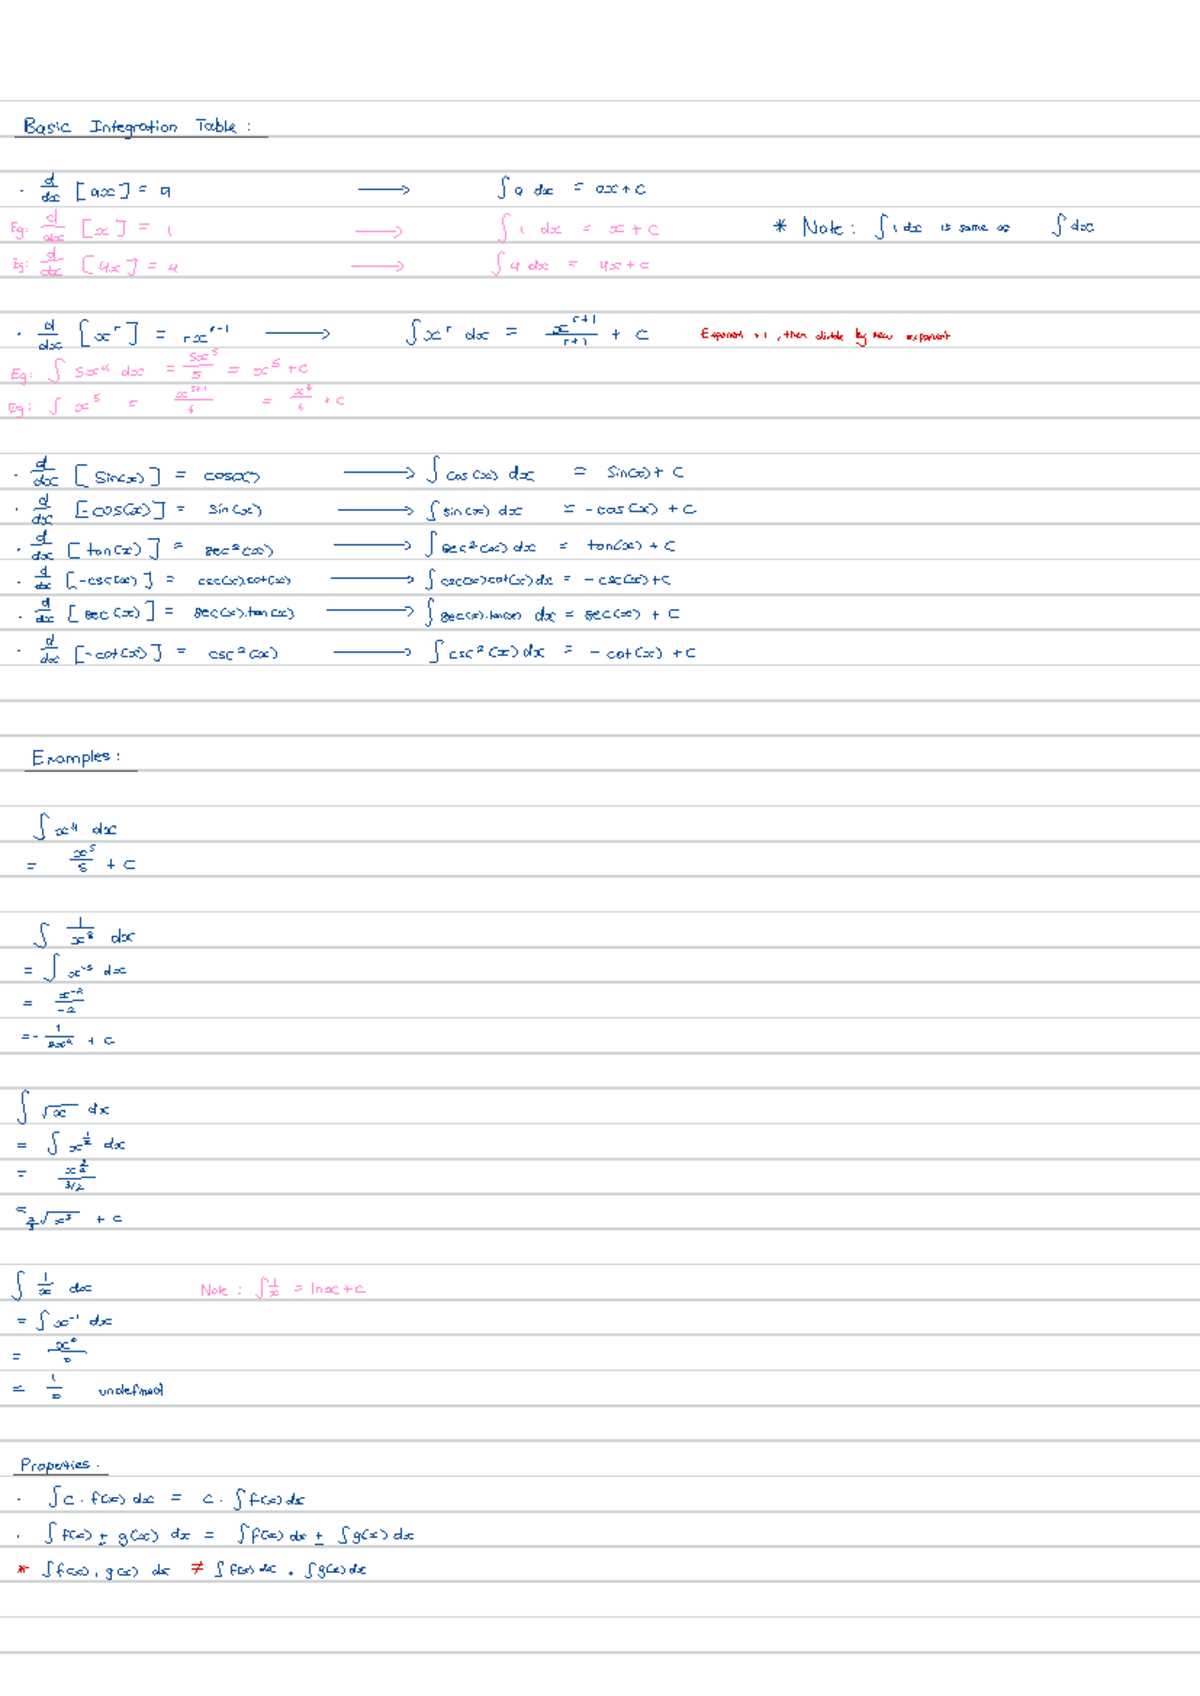 Basic Integration Table :
· d/dx [ax] = a ⟶ ∫ a dx = ax + c
Eg: d/dx [x] = 1 ⟶ ∫ 1 dx = x + c * Note : ∫ 1 dx is same as ∫ dx
Eg: d/dx [4x] = 4 ⟶ ∫ 4 dx = 4x + c
· d/dx [x^r] = rx^(r-1) ⟶ ∫ x^r dx = x^(r+1)/(r+1) + c Exponent +1, then divide by new exponent
Eg: ∫ 5x^4 dx = 5x^5/5 = x^5 + c
Eg: ∫ x^5 = x^(5+1)/6 = x^6/6 + c
· d/dx [sin(x)] = cos(x) ⟶ ∫ cos(x) dx = sin(x) + c
· d/dx [-cos(x)] = sin(x) ⟶ ∫ sin(x) dx = -cos(x) + c
· d/dx [tan(x)] = sec²(x) ⟶ ∫ sec²(x) dx = tan(x) + c
· d/dx [-csc(x)] = csc(x).cot(x) ⟶ ∫ csc(x)cot(x) dx = -csc(x) + c
· d/dx [sec(x)] = sec(x).tan(x) ⟶ ∫ sec(x).tan(x) dx = sec(x) + c
· d/dx [-cot(x)] = csc²(x) ⟶ ∫ csc²(x) dx = -cot(x) + c
Examples :
∫ x^4 dx
= x^5/5 + c
∫ 1/x^3 dx
= ∫ x^-3 dx
= x^-2/-2
= - 1/2x² + c
∫ √x dx
= ∫ x^(1/2) dx
= x^(3/2)/(3/2)
= 2/3 √x³ + c
∫ 1/x dx Note : ∫ 1/x = lnx + c
= ∫ x^-1 dx
= x^0/0
= 1/0 undefined
Properties.
· ∫ c . f(x) dx = c . ∫ f(x) dx
· ∫ f(x) ± g(x) dx = ∫ f(x) dx ± ∫ g(x) dx
* ∫ f(x) . g(x) dx ≠ ∫ f(x) dx . ∫ g(x) dx